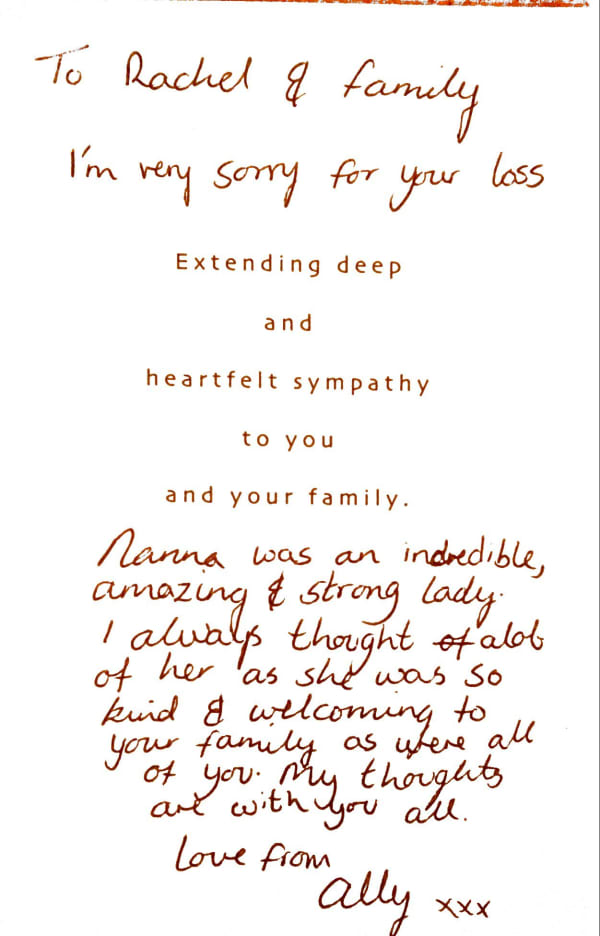 To Rachel & family
I'm very sorry for your loss
Extending deep
and
heartfelt sympathy
to you
and your family.
Nanna was an incredible,
amazing & strong lady.
I always thought of alot
of her as she was so
kind & welcoming to
your family as were all
of you. My thoughts
are with you all.
Love from
Ally xxx